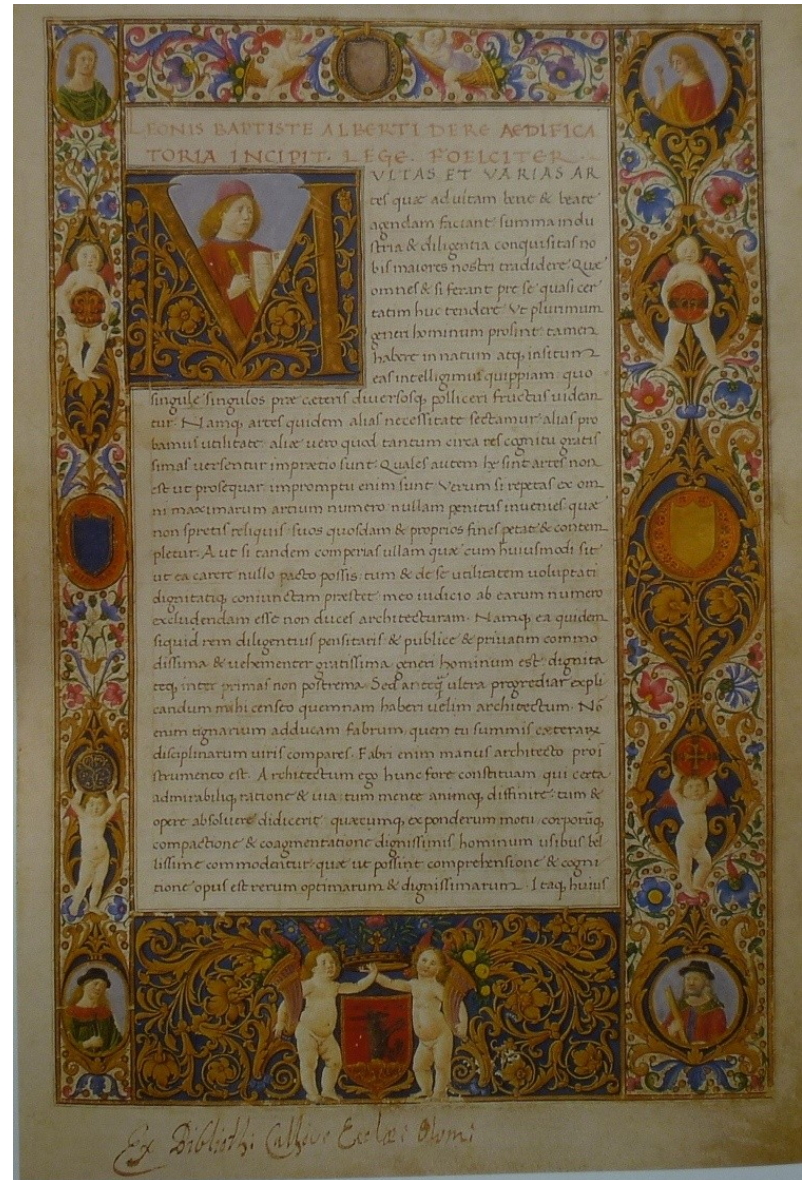 LEONIS BAPTISTE ALBERTI DE RE AEDIFICA
TORIA INCIPIT. LEGE. FOELCITER.
M
VLTAS ET VARIAS AR
tes quæ ad uitam bene & beate
agendam faciant summa indu
stria & diligentia conquisitas no
bis maiores nostri tradidere. Quæ
omnes & si ferant pre se quasi cer
tatim huc tendere. Vt plurimum
generi hominum prosint. tamen
habere innatum atq, insitum
eas intelligimus quippiam. quo
singule singulos præ cæteris diuersosq, polliceri fructus uidean
tur. Namq, artes quidem alias necessitate sectamur. alias pro
bamus utilitate. aliæ uero quod tantum circa res cognitu gratis
simas uersentur imprætio sunt. Quales autem he sint artes non
est ut prosequar. impromptu enim sunt. Verum si repetas ex om
ni maximarum artium numero nullam penitus inuenies quæ
non spretis reliquis suos quosdam & proprios fines petat & contem
pletur. Aut si tandem comperias ullam quæ cum huiusmodi sit
ut ea carere nullo pacto possis. tum & de se utilitatem uoluptati
dignitatiq, coniunctam præstet. meo iudicio ab earum numero
excludendam esse non duces architecturam. Namq, ea quidem
siquid rem diligentius pensitaris & publice & priuatim commo
dissima & uehementer gratissima generi hominum est. dignita
teq, inter primas non postrema. Sed anteq̃ ultra progrediar expli
candum mihi censeo quemnam haberi uelim architectum. Nō
enim tignarium adducam fabrum. quem tu summis cæterarꝝ
disciplinarum uiris compares. Fabri enim manus architecto pro ī
strumento est. Architectum ego hunc fore constituam. qui certa
admirabiliq, ratione & uia. tum mente animoq, diffinire. tum &
opere absoluere didicerit. quæcumq, ex ponderum motu. corporūq,
compactione & coagmentatione dignissimis hominum usibus bel
lissime commodentur. quæ ut possint comprehensione & cogni
tione opus est rerum optimarum & dignissimarum. Itaq, huius
Ex Bibliothi Cathive Ecclæi Olomi